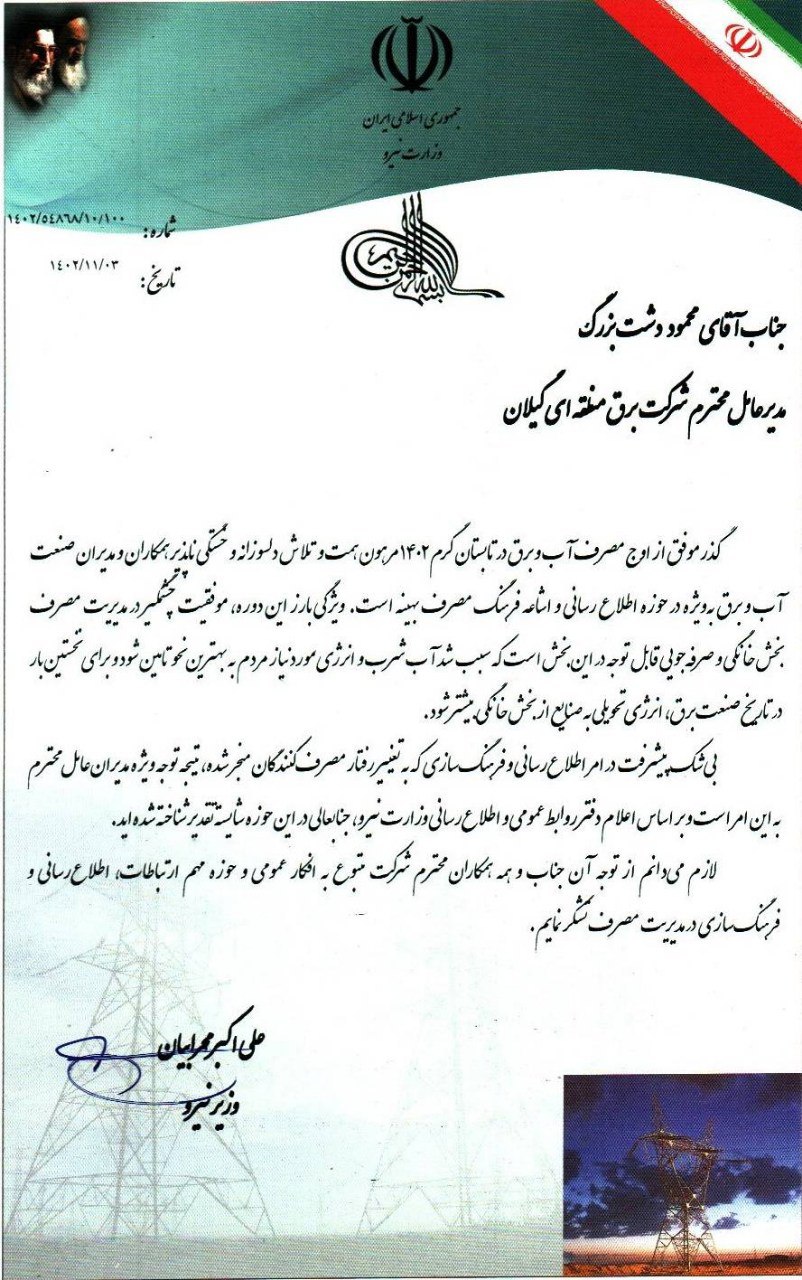 جمهوری اسلامی ایران
وزارت نیرو
شماره: ۱۴۰۲/۵٤۸٦۸/۱۰/۱۰۰
تاریخ: ۱٤۰۲/۱۱/۰۳
بسم الله الرحمن الرحیم
جناب آقای محمود دشت بزرگ
مدیرعامل محترم شرکت برق منطقه ای گیلان
گذر موفق از اوج مصرف آب و برق در تابستان گرم ۱۴۰۲ مرهون همت و تلاش دلسوزانه و خستگی ناپذیر همکاران و مدیران صنعت
آب و برق به‌ویژه در حوزه اطلاع رسانی و اشاعه فرهنگ مصرف بهینه است. ویژگی بارز این دوره، موفقیت چشمگیر در مدیریت مصرف
بخش خانگی و صرفه جویی قابل توجه در این بخش است که سبب شد آب شرب و انرژی مورد نیاز مردم به بهترین نحو تامین شود و برای نخستین بار
در تاریخ صنعت برق، انرژی تحویلی به صنایع از بخش خانگی بیشتر شود.
بی‌شک پیشرفت در امر اطلاع رسانی و فرهنگ سازی که به تغییر رفتار مصرف کنندگان منجر شده، نتیجه توجه ویژه مدیران عامل محترم
به این امر است و بر اساس اعلام دفتر روابط عمومی و اطلاع رسانی وزارت نیرو، جنابعالی در این حوزه شایسته تقدیر شناخته شده اید.
لازم می‌دانم از توجه آن جناب و همه همکاران محترم شرکت متبوع به افکار عمومی و حوزه مهم ارتباطات، اطلاع رسانی و
فرهنگ سازی در مدیریت مصرف تشکر نمایم.
علی اکبر محرابیان
وزیر نیرو